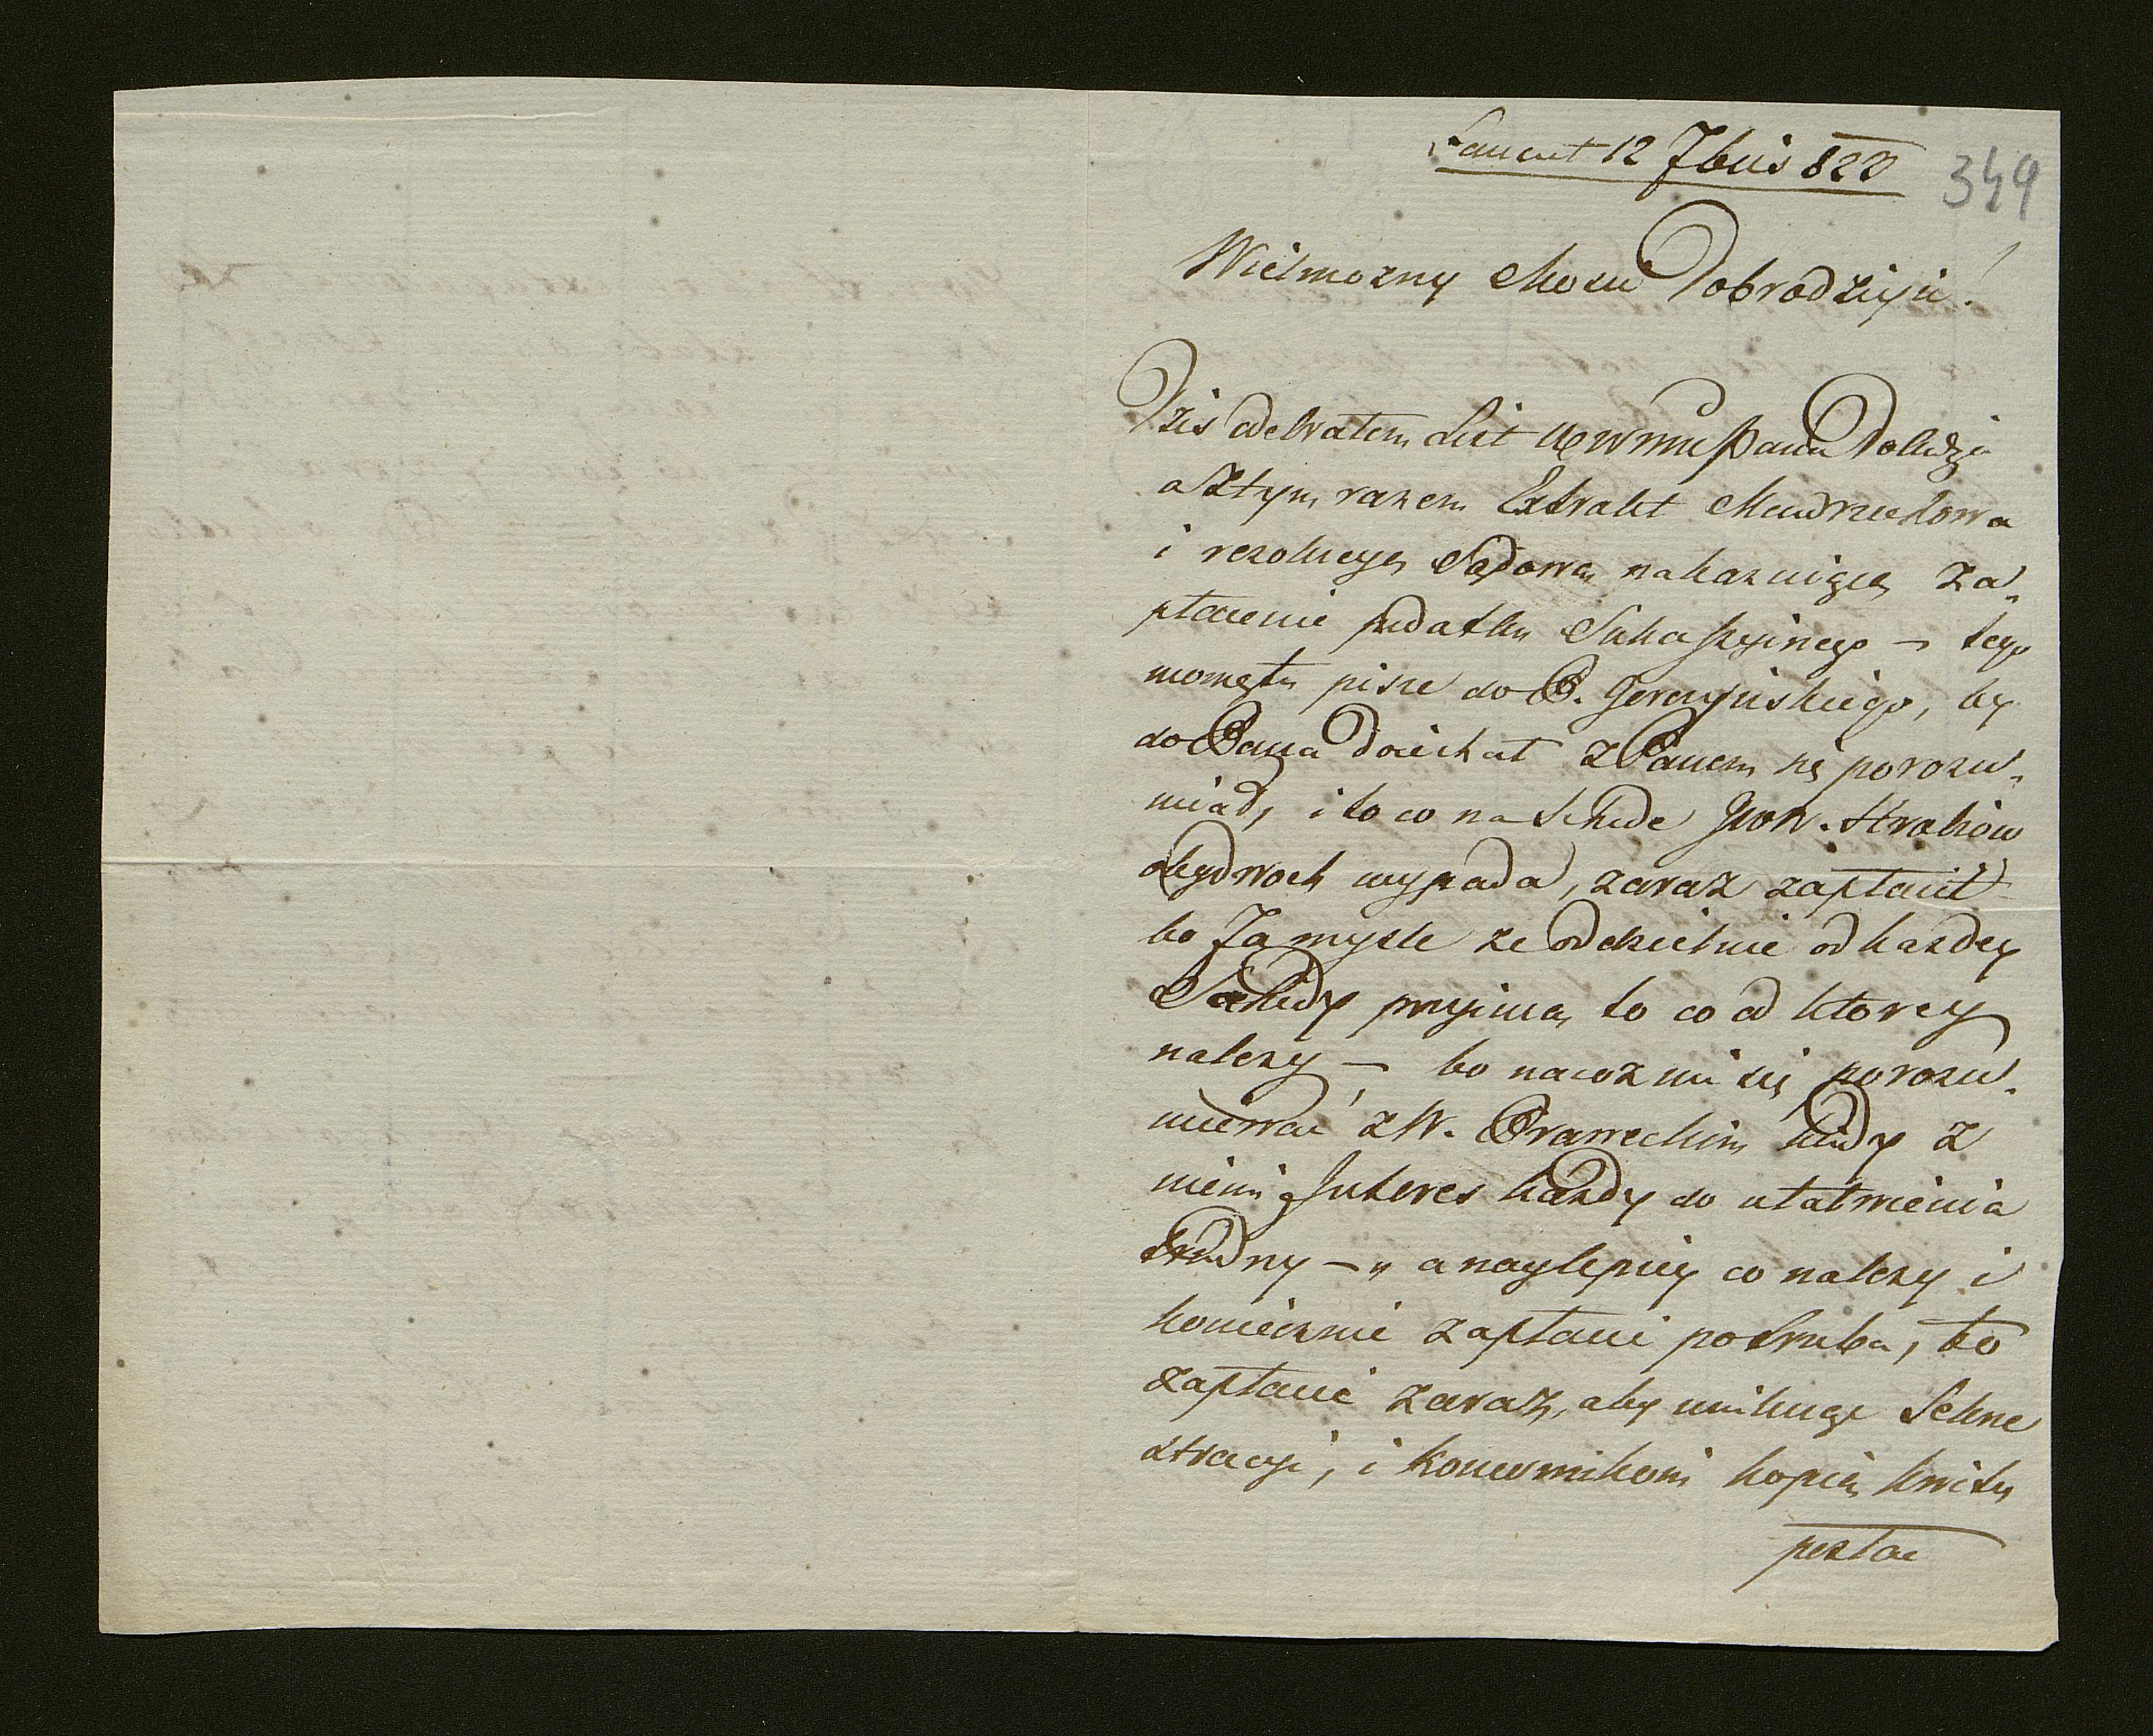 Łancut 12 7bris 822
349
Wielmozny Mosci Dobrodzieju!
Dzis odebrałem List WęWmć Pana Dobrdzja
a z tym razem Extrakt
i rezolucyą Sądową nakazuiącą za„
płacenie podatku Sukcessyinego – tego
momętu pisze do P. Gorczyńskiego, by
do Pana doiechał z Panem się porozu„
miał, i to co na Schede JWW. Hrabiow
obydwoch wypada, zaraz zapłacił
bo Ja mysle ze oddzielnie od kazdey
Schedy przyimą to co od ktorey
nalezy – bo nacoz mi się porozu„
miewać z W. Praweckim kiedy z
niemi Interes kazdy do ułatwienia
trudny –„ a naylepiey co nalezy i
koniecznie zapłacić potrzeba, to
zapłacić zaraz, aby uniknąc Sekwe
stracyi, i Komornikowi kopią kwitu
posłac